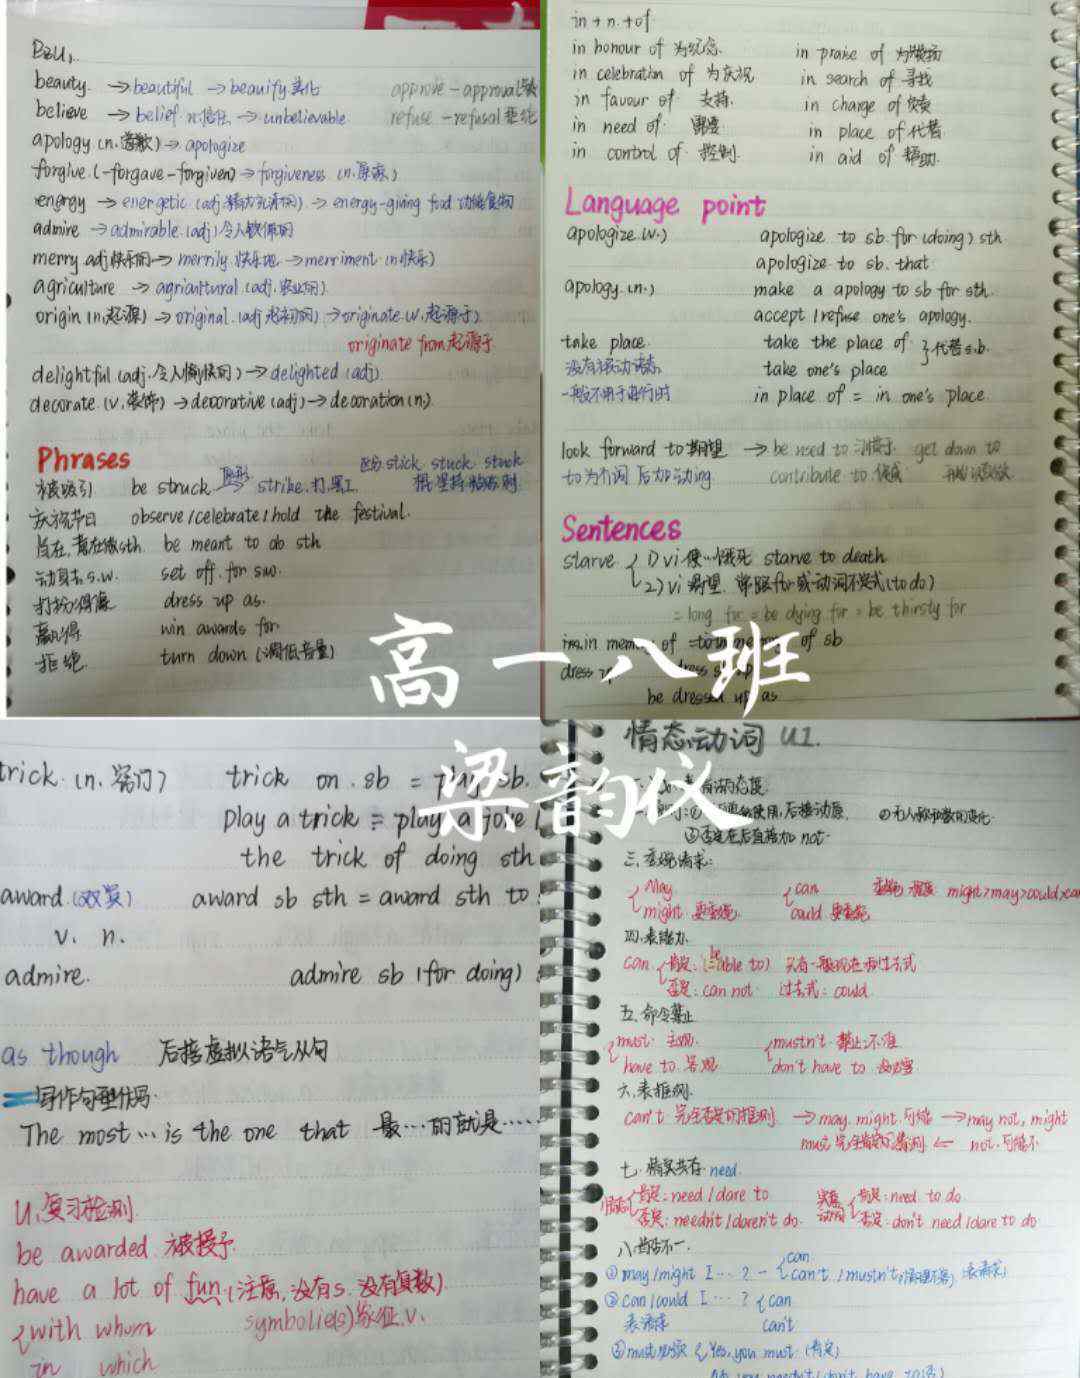 beauty. →beautiful → beauify 美化 approve - approval
believe → belief n.信任 → unbelievable refuse - refusal 拒绝
apology (n. 道歉) → apologize
forgive. (-forgave-forgiven) → forgiveness (n.原谅)
energy → energetic (adj.精力充沛的) → energy-giving food 功能食物
admire → admirable (adj) 令人钦佩的
merry adj快乐的 → merrily 快乐地 → merriment (n.快乐)
agriculture → agricultural (adj.农业的)
origin (n.起源) → original (adj起初的) → originate (v.起源于)
originate from 起源于
delightful (adj.令人愉快的) → delighted (adj)
decorate. (v.装饰) → decorative (adj) → decoration (n.)
Phrases
区分 stick stuck stuck
被吸引 be struck 原形 → strike.打.罢工
庆祝节日 observe/celebrate/hold the festival.
旨在,意在做sth be meant to do sth
动身去s.w. set off for sw.
打扮得像 dress up as.
赢得 win awards for
拒绝. turn down (调低音量)
in + n. + of
in honour of 为纪念 in praise of 为赞扬
in celebration of 为庆祝 in search of 寻找
in favour of 支持. in charge of 负责
in need of 需要 in place of 代替
in control of 控制. in aid of 帮助.
Language point
apologize (v.) apologize to sb. for (doing) sth.
apologize to sb. that
apology (n.) make a apology to sb for sth.
accept / refuse one's apology.
take place. take the place of } 代替s.b.
没有被动语态 take one's place
一般不用于进行时 in place of = in one's place.
look forward to 期望 → be used to 习惯于 get down to
to为介词 后加动ing. contribute to 促成 开始认真做
Sentences
starve { 1) vi 使…饿死 starve to death
2) vi 渴望. 常跟for 或动词不定式 (to do)
= long for = be dying for = be thirsty for
of sb
dress up
be dressed up as
高一八班
梁韵仪
trick (n. 窍门) trick on sb = play sb.
play a trick = play a joke
the trick of doing sth
award (v.奖) award sb sth = award sth to
v. n.
admire. admire sb (for doing)
as though 后接虚拟语气从句
写作句型仿写.
The most … is the one that 最…的就是……
U1复习检测
be awarded 被授予.
have a lot of fun (注意,没有s.没有复数)
{ with whom symbol(e(s) 象征.v.
in which
情态动词 U1.
后接动原. ②无人称和数的变化
③否定在后直接加 not.
三.委婉请求:
{ May { can 委婉 程度 might>may>could>can
might 更委婉. could 更委婉
四.表能力.
can { 肯定: (= be able to) 只有一般现在和过去式
否定: can not 过去式: could.
五.命令禁止
{ must: 主观. { mustn't 禁止;不准
have to 客观 don't have to 没必要
六.表推测.
can't 完全否定的推测 → may. might 可能 → may not, might
must 完全肯定的推测 ← not. 可能不
七.情实共存. need.
情态 { 肯定: need / dare to 实意动词 { 肯定: need to do
否定: needn't / daren't do. 否定: don't need / dare to do
八.肯否不一.
①may / might I … ? - { can
can't / mustn't
②can / could I … ? { can
表请求 can't
③must { Yes, you must. (肯定)